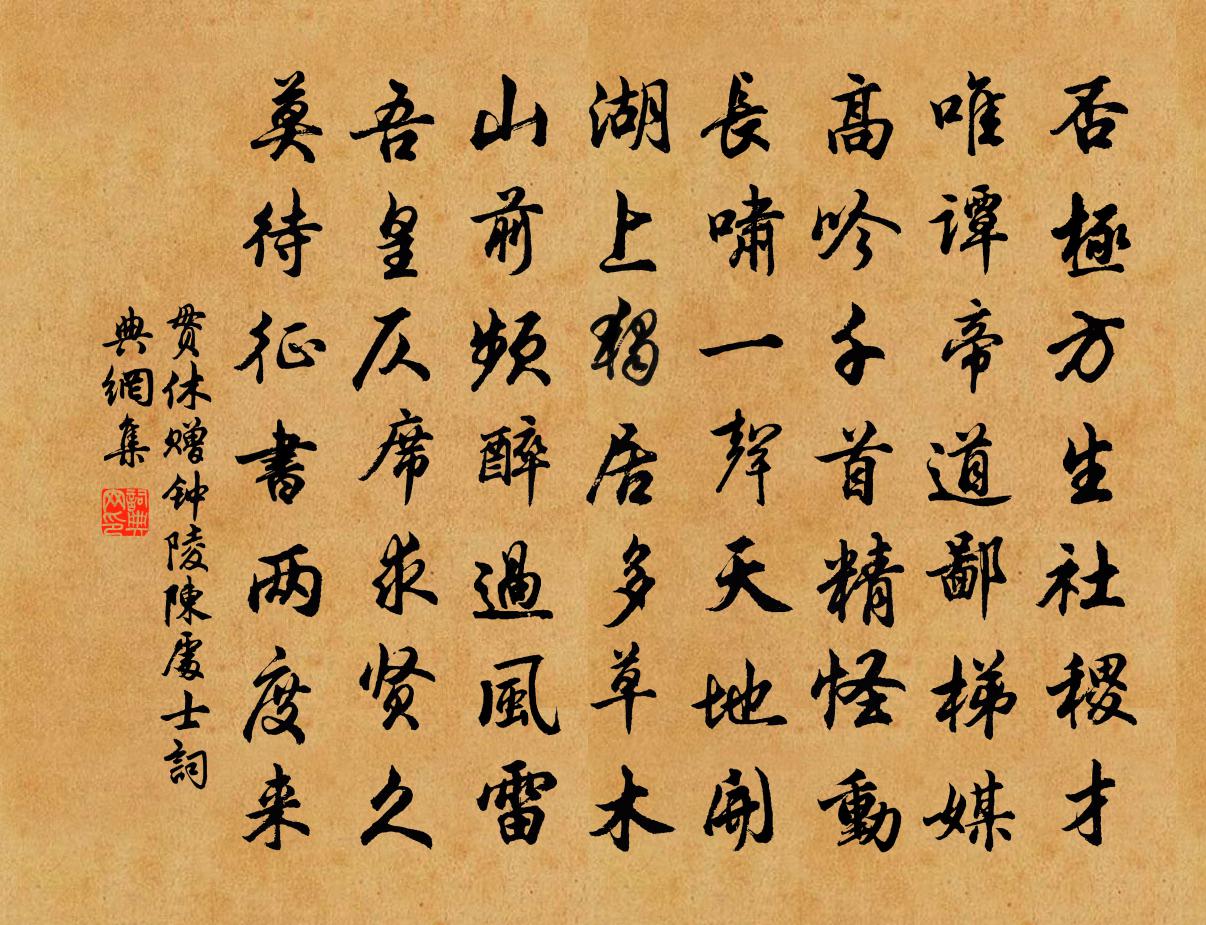 否極方生社稷才
唯譚帝道鄙梯媒
高吟千首精怪動
長嘯一聲天地開
湖上獨居多草木
山前頻醉過風雷
吾皇仄席求贤久
莫待征書两度来
贯休赠钟陵陳處士詞
典網集
詞典
网印